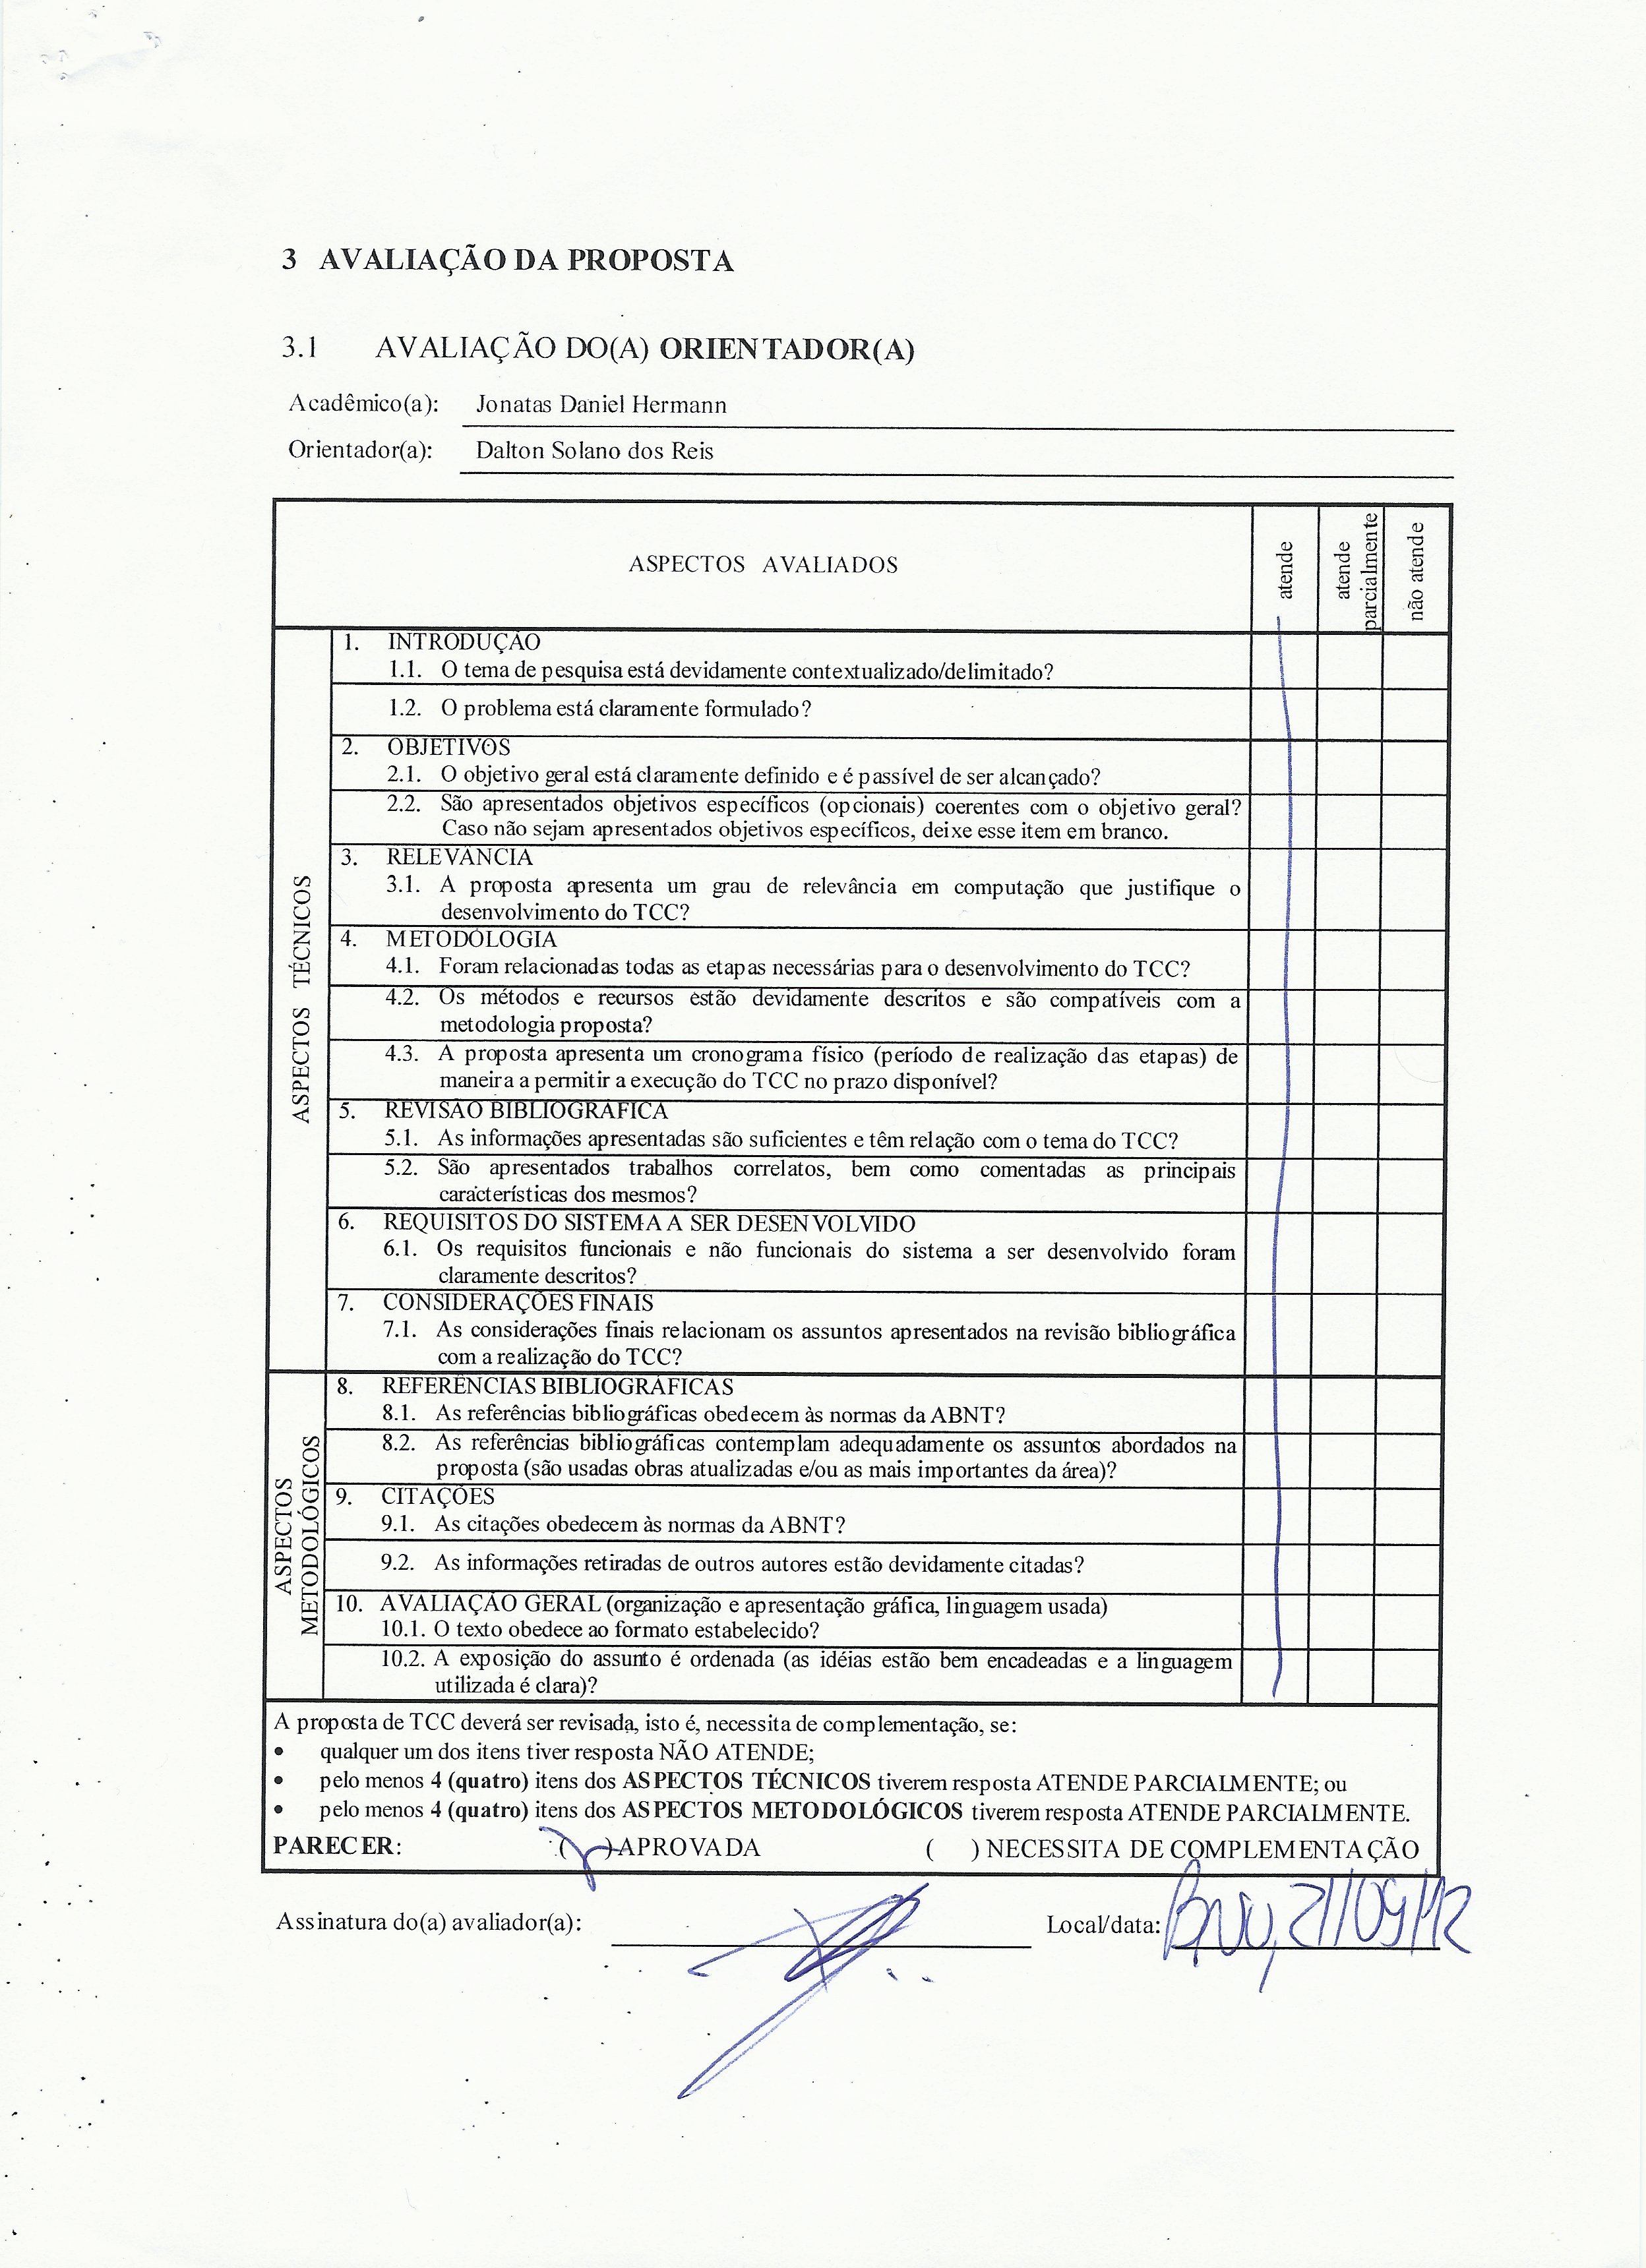 3 AVALIAÇÃO DA PROPOSTA
3.1 AVALIAÇÃO DO(A) ORIENTADOR(A)
Acadêmico(a): Jonatas Daniel Hermann
Orientador(a): Dalton Solano dos Reis
ASPECTOS AVALIADOS
atende
atende parcialmente
não atende
ASPECTOS TÉCNICOS
1. INTRODUÇÃO
1.1. O tema de pesquisa está devidamente contextualizado/delimitado?
1.2. O problema está claramente formulado?
2. OBJETIVOS
2.1. O objetivo geral está claramente definido e é passível de ser alcançado?
2.2. São apresentados objetivos específicos (opcionais) coerentes com o objetivo geral?
Caso não sejam apresentados objetivos específicos, deixe esse item em branco.
3. RELEVÂNCIA
3.1. A proposta apresenta um grau de relevância em computação que justifique o
desenvolvimento do TCC?
4. METODOLOGIA
4.1. Foram relacionadas todas as etapas necessárias para o desenvolvimento do TCC?
4.2. Os métodos e recursos estão devidamente descritos e são compatíveis com a
metodologia proposta?
4.3. A proposta apresenta um cronograma físico (período de realização das etapas) de
maneira a permitir a execução do TCC no prazo disponível?
5. REVISÃO BIBLIOGRÁFICA
5.1. As informações apresentadas são suficientes e têm relação com o tema do TCC?
5.2. São apresentados trabalhos correlatos, bem como comentadas as principais
características dos mesmos?
6. REQUISITOS DO SISTEMA A SER DESENVOLVIDO
6.1. Os requisitos funcionais e não funcionais do sistema a ser desenvolvido foram
claramente descritos?
7. CONSIDERAÇÕES FINAIS
7.1. As considerações finais relacionam os assuntos apresentados na revisão bibliográfica
com a realização do TCC?
ASPECTOS METODOLÓGICOS
8. REFERÊNCIAS BIBLIOGRÁFICAS
8.1. As referências bibliográficas obedecem às normas da ABNT?
8.2. As referências bibliográficas contemplam adequadamente os assuntos abordados na
proposta (são usadas obras atualizadas e/ou as mais importantes da área)?
9. CITAÇÕES
9.1. As citações obedecem às normas da ABNT?
9.2. As informações retiradas de outros autores estão devidamente citadas?
10. AVALIAÇÃO GERAL (organização e apresentação gráfica, linguagem usada)
10.1. O texto obedece ao formato estabelecido?
10.2. A exposição do assunto é ordenada (as idéias estão bem encadeadas e a linguagem
utilizada é clara)?
A proposta de TCC deverá ser revisada, isto é, necessita de complementação, se:
• qualquer um dos itens tiver resposta NÃO ATENDE;
• pelo menos 4 (quatro) itens dos ASPECTOS TÉCNICOS tiverem resposta ATENDE PARCIALMENTE; ou
• pelo menos 4 (quatro) itens dos ASPECTOS METODOLÓGICOS tiverem resposta ATENDE PARCIALMENTE.
PARECER: ( ) APROVADA ( ) NECESSITA DE COMPLEMENTAÇÃO
Assinatura do(a) avaliador(a): Local/data: 21/09/12